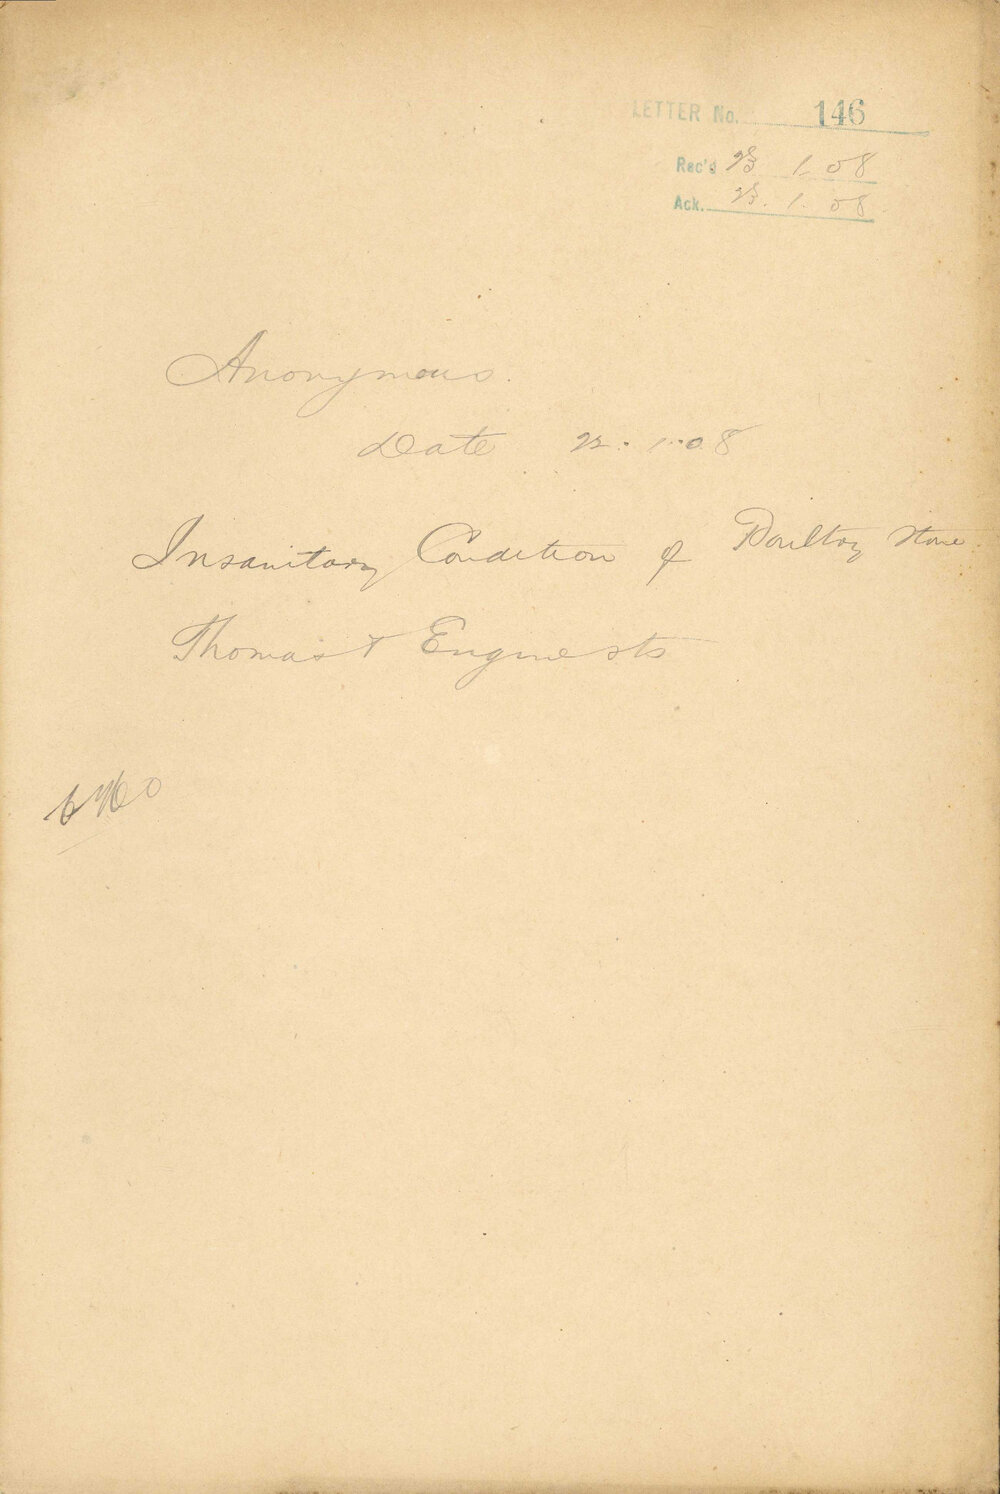 LETTER No. 146
Rec'd 23 1. 08
Ack. 23. 1. 08.
Anonymous.
Date 22. 1. 08
Insanitary Condition of Poultry Store
Thomas &